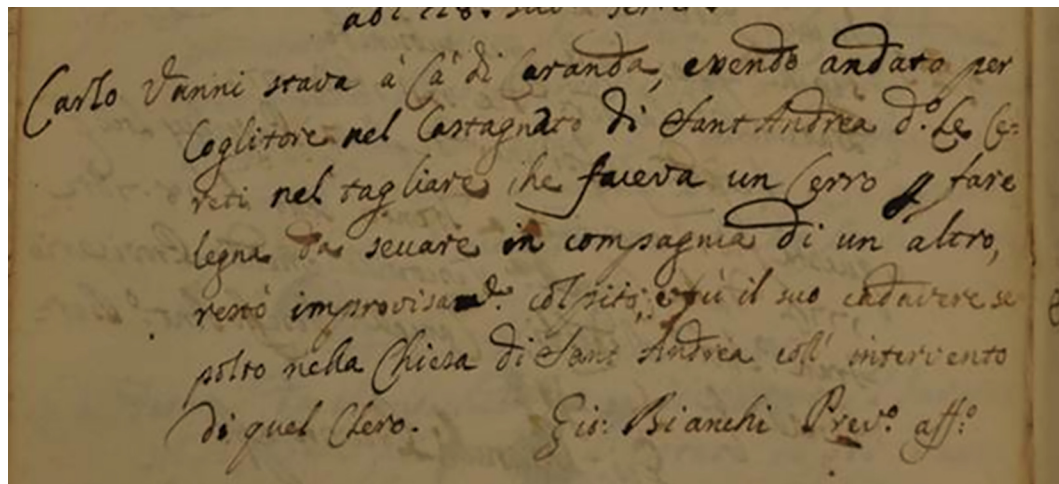 Carlo Vanni stava à Cà di Caranda, essendo andato per
Coglitore nel Castagneto di Sant Andrea d.º Le Ce=
reti nel tagliare che faceva un Cerro p fare
legna da seccare in compagnia di un altro,
restò improvisam.e colpito, e fù il suo cadavere se
polto nella Chiesa di Sant Andrea coll' intervento
di quel Clero. Gio: Bianchi Prev.º aff.º